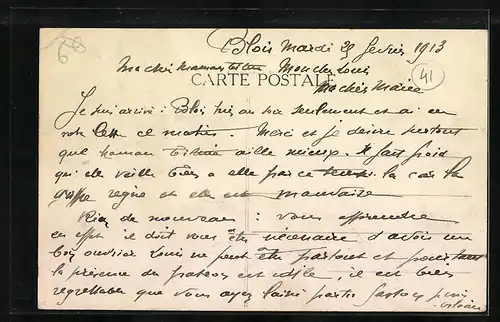 Blois Mardi 25 février 1913
Ma chère maman Mon cher Louis
CARTE POSTALE
Ma chère Maria
41
Je suis arrivé à Blois hier au soir seulement et ai eu
votre lettre ce matin. Merci et je désire surtout
que maman aille mieux. Il fait froid
qu'elle veille bien a elle par ce temps là car la
grippe règne et elle est mauvaise
Rien de nouveau : vous apprendre
en effet il doit vous être nécessaire d'avoir un
bon ouvrier Louis ne peut être partout et pourtant
la présence du patron est utile, il est bien
regrettable que vous ayez laissé partir pour